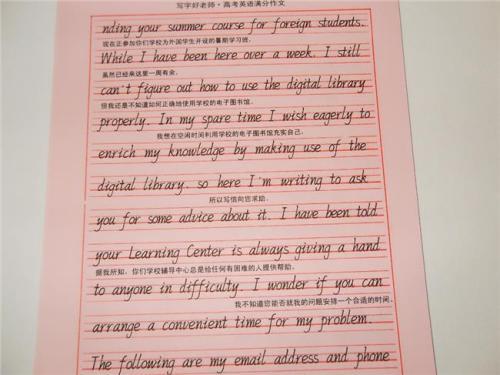 写字好老师·高考英语满分作文
nding your summer course for foreign students.
现在正参加你们学校为外国学生开设的暑期学习班。
While I have been here over a week, I still
虽然已经来这里一周有余,
can't figure out how to use the digital library
但我还是不知道如何正确地使用学校的电子图书馆。
properly. In my spare time I wish eagerly to
我想在空闲时间利用学校的电子图书馆充实自己。
enrich my knowledge by making use of the
digital library. so here I'm writing to ask
所以写信向您求助。
you for some advice about it. I have been told
your Learning Center is always giving a hand
据我所知,你们学校辅导中心总是给任何有困难的人提供帮助。
to anyone in difficulty. I wonder if you can
我不知道您能否就我的问题安排一个合适的时间。
arrange a convenient time for my problem.
The following are my email address and phone